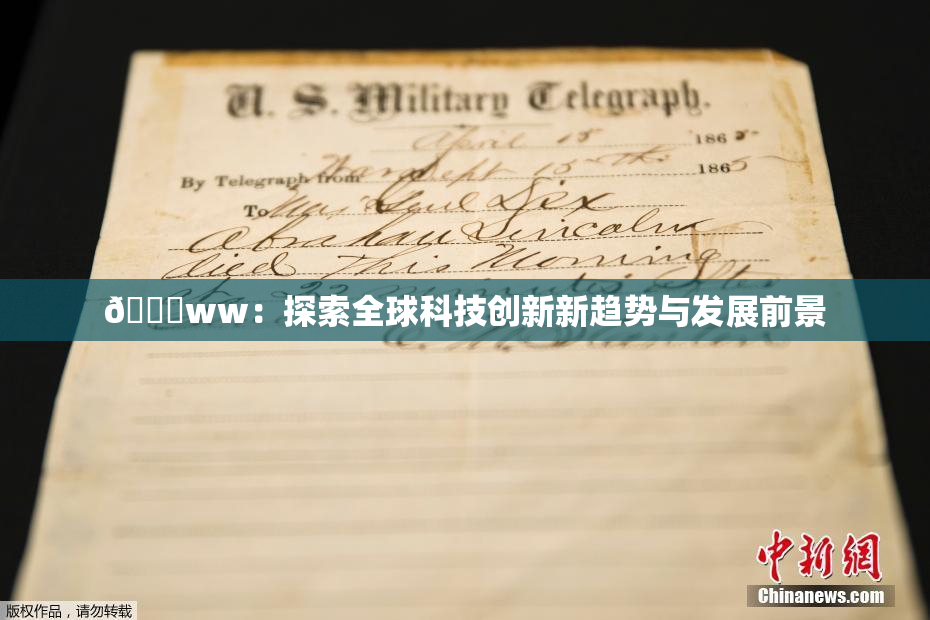 U. S. Military Telegraph.
April 15 1865
By Telegraph from War Dept 15th 1865
To Maj Genl Dix
Abraham Lincoln
died This Morning
at 22 minutes after
ð\x9f\x94\x9eww：探索全球科技创新新趋势与发展前景
E. M. Stanton
中新網
Chinanews.com
版权作品，请勿转载